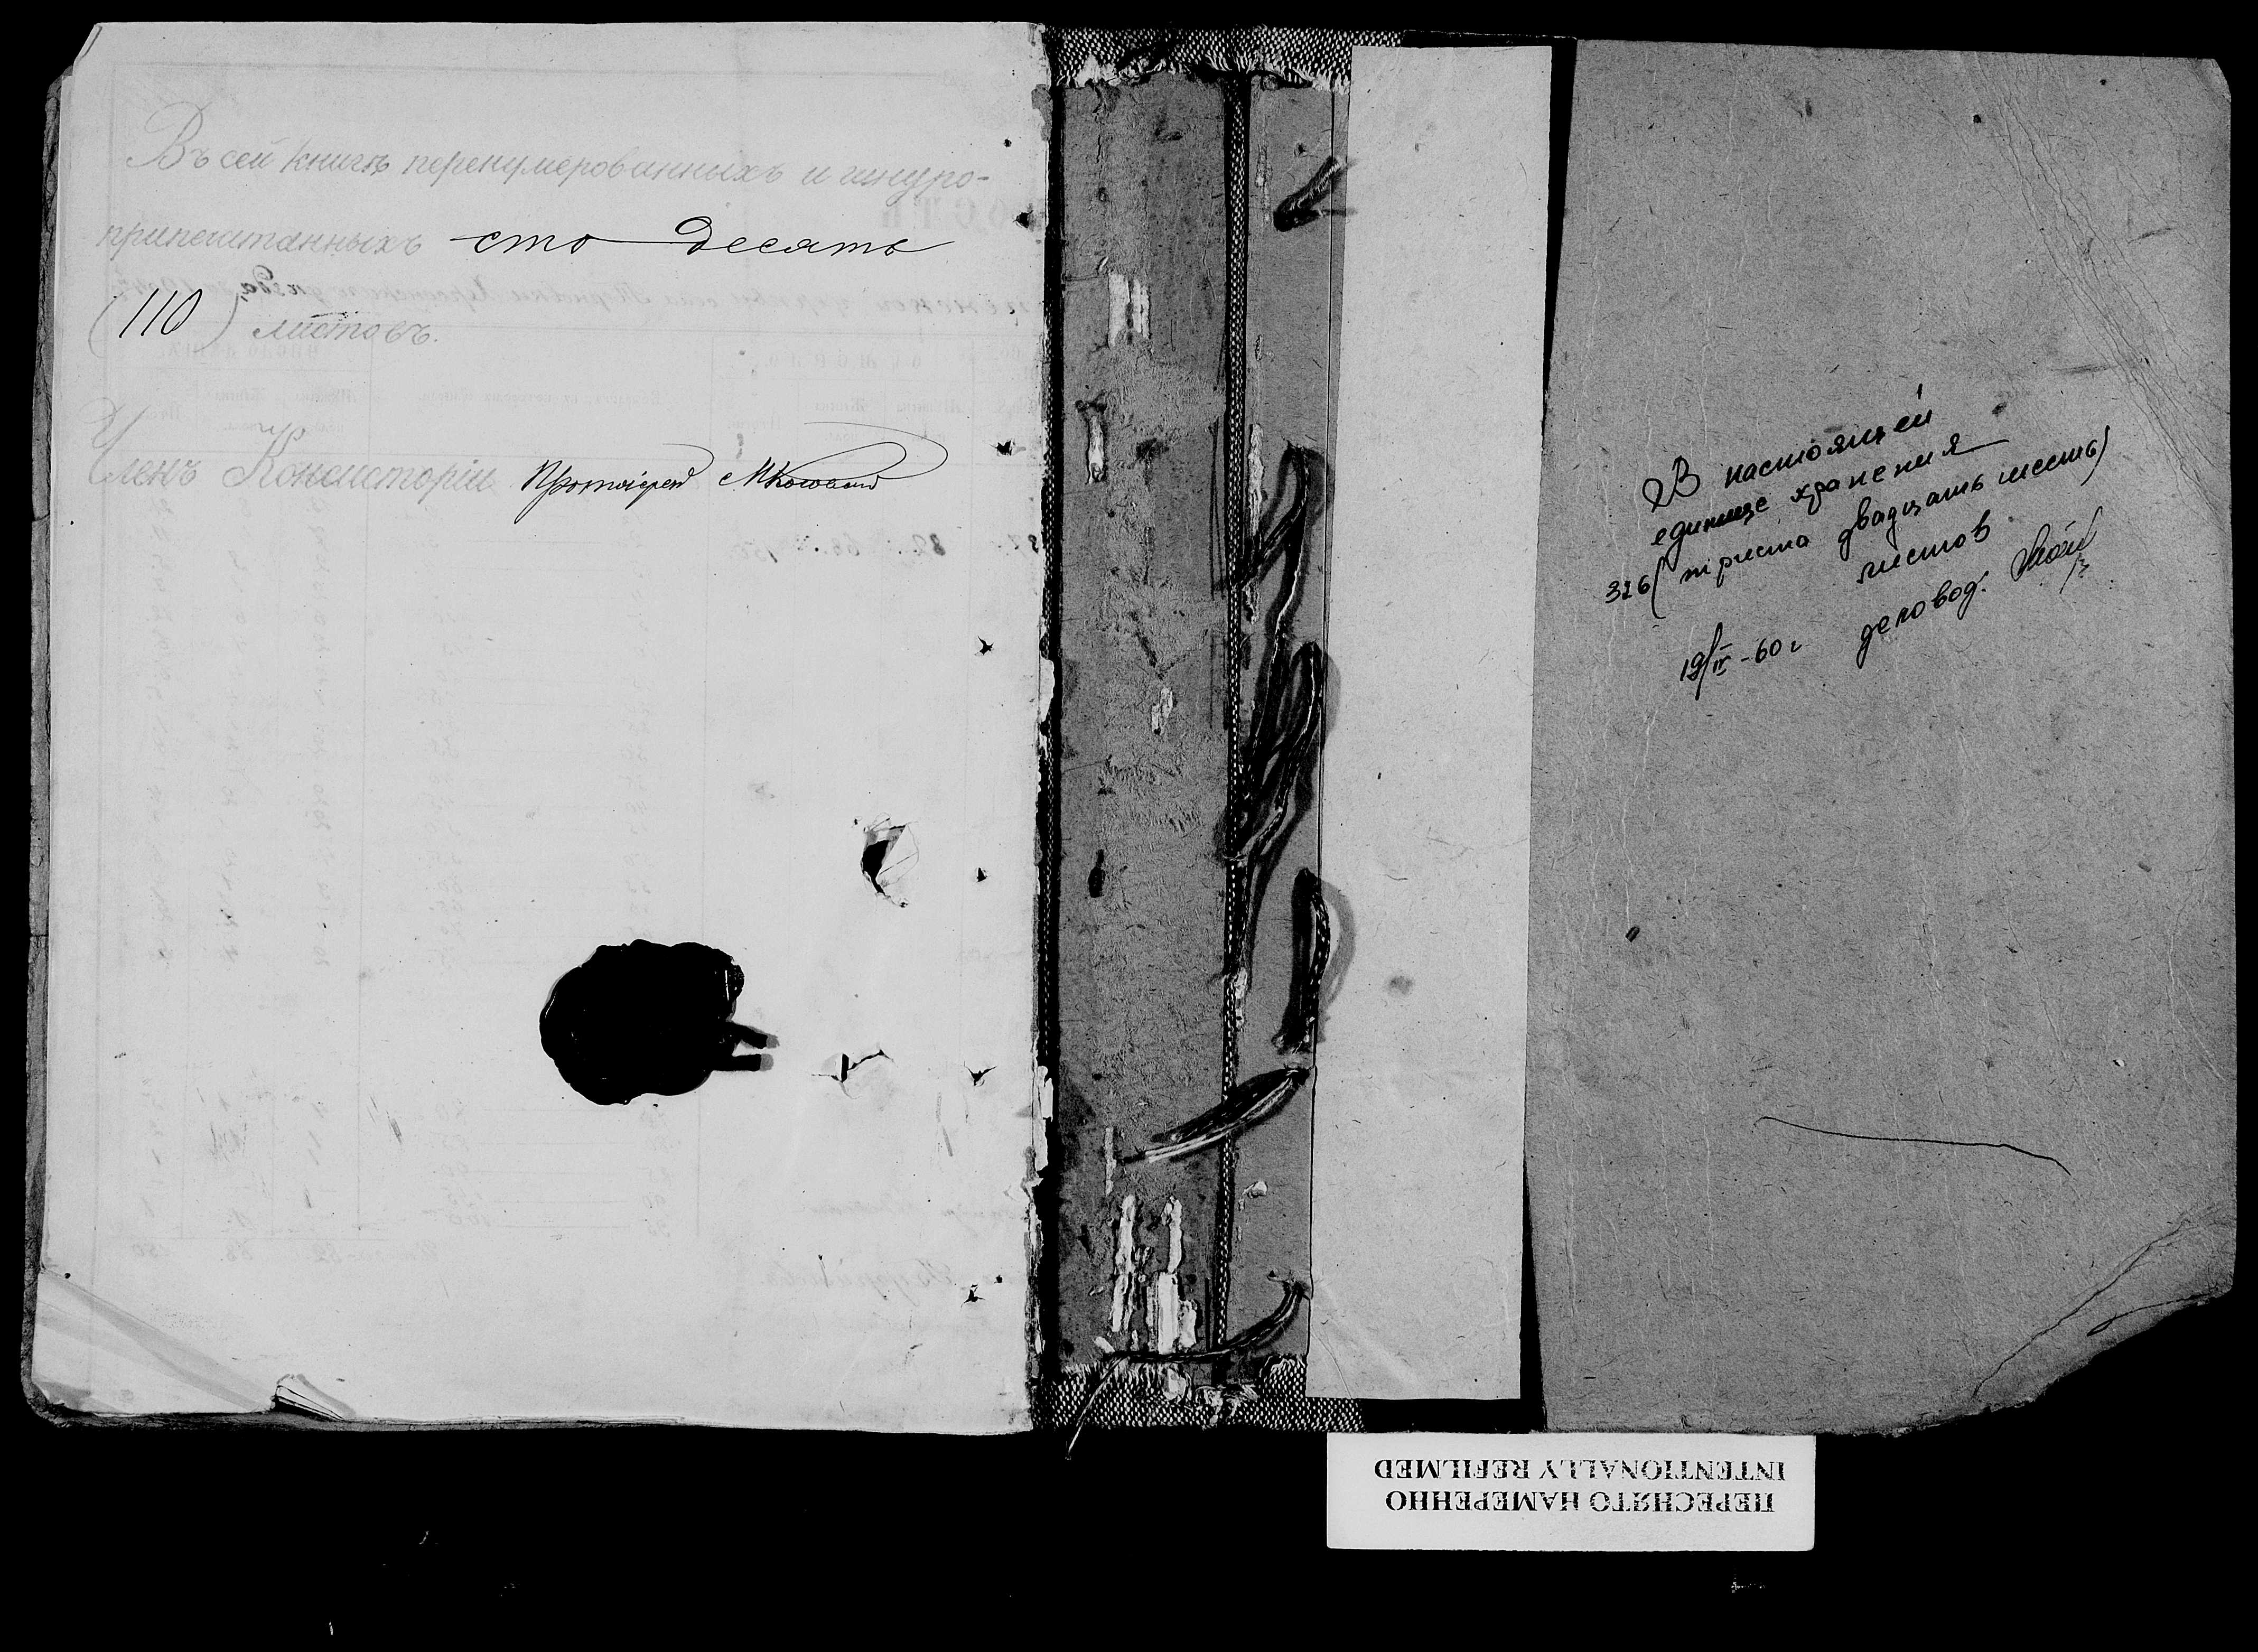 Въ сей книгѣ перенумерованныхъ и шнуро-
припечатанныхъ сто десять
(110) листовъ.
Членъ Консисторіи Протоіерей
В настоящей
единице хранения
326 (триста двадцать шесть)
листов
19/IV-60 г деловод.
ПЕРЕСНЯТО НАМЕРЕННО
INTENTIONALLY REFILMED